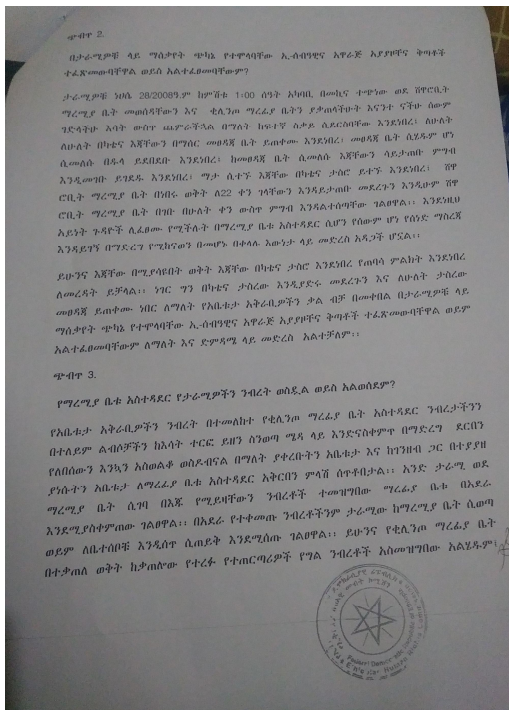 ጭብጥ 2.
በታራሚዎቹ ላይ ማሰቃየት ጭካኔ የተሞላባቸው ኢ-ሰብዓዊና አዋራጅ አያያዞችና ቅጣቶች
ተፈጽመውባቸዋል ወይስ አልተፈፀመባቸውም?
ታራሚዎቹ ነሀሴ 28/2008ዓ.ም ከምሽቱ 1:00 ሰዓት አካባቢ በመኪና ተጭነው ወደ ሸዋሮቢት
ማረሚያ ቤት መወሰዳቸውን እና ቂሊንጦ ማረፊያ ቤትን ያቃጠላችሁት እናንተ ናችሁ ሰውም
ገድላችሁ እሳት ውስጥ ጨምራችኋል በማለት ከፍተኛ ስቃይ ሲደርስባቸው እንደነበረ፤ ለሁለት
ለሁለት በካቴና እጃቸውን በማሰር መፀዳጃ ቤት ይጠቀሙ እንደነበረ፤ መፀዳጃ ቤት ሲሄዱም ሆነ
ሲመለሱ በዱላ ይደበደቡ እንደነበረ፤ ከመፀዳጃ ቤት ሲመለሱ እጃቸውን ሳይታጠቡ ምግብ
እንዲመገቡ ይገደዱ እንደነበረ፤ ማታ ሲተኙ እጃቸው በካቴና ታስሮ ይተኙ እንደነበረ፤ ሸዋ
ሮቢት ማረሚያ ቤት በነበሩ ወቅት ለ22 ቀን ገላቸውን እንዳይታጠቡ መደረጉን እንዲሁም ሸዋ
ሮቢት ማረሚያ ቤት በገቡ በሁለት ቀን ውስጥ ምግብ እንዳልተሰጣቸው ገልፀዋል፡፡ እንደነዚህ
አይነት ጉዳዮች ሊፈፀሙ የሚችሉት በማረሚያ ቤቱ አስተዳደር ሲሆን የሰውም ሆነ የሰነድ ማስረጃ
እንዳይገኝ በማድረግ የሚከናወን በመሆኑ በቀላሉ እውነታ ላይ መድረስ አዳጋች ሆኗል፡፡
ይሁንና እጃቸው በሚያሳዩበት ወቅት እጃቸው በካቴና ታስሮ እንደነበረ የጠባሳ ምልክት እንደነበረ
ለመረዳት ይቻላል፡፡ ነገር ግን በካቴና ታስረው እንዲያድሩ መደረጉን እና ለሁለት ታስረው
መፀዳጃ ይጠቀሙ ነበር ለማለት የአቤቱታ አቅራቢዎችን ቃል ብቻ በመቀበል በታራሚዎቹ ላይ
ማሰቃየት ጭካኔ የተሞላባቸው ኢ-ሰብዓዊና አዋራጅ አያያዞችና ቅጣቶች ተፈጽመውባቸዋል ወይም
አልተፈፀመባቸውም ለማለት እና ድምዳሜ ላይ መድረስ አልተቻለም፡፡
ጭብጥ 3.
የማረሚያ ቤቱ አስተዳደር የታራሚዎችን ንብረት ወስዷል ወይስ አልወሰደም?
የአቤቱታ አቅራቢዎችን ንብረት በተመለከተ የቂሊንጦ ማረፊያ ቤት አስተዳደር ንብረታችንን
በተለይም ልብሶቻችን ከእሳት ተርፎ ይዘን ስንወጣ ሜዳ ላይ እንድናስቀምጥ በማድረግ ደርበን
የለበስነውን እንኳን አስወልቆ ወስዶብናል በማለት ያቀረቡትን አቤቱታ እና ከገንዘብ ጋር በተያያዘ
ያነሱትን አቤቱታ ለማረፊያ ቤቱ አስተዳደር አቅርበን ምላሽ ሰጥቶበታል፡፡ አንድ ታራሚ ወደ
ማረሚያ ቤት ሲገባ በእጁ የሚይዛቸውን ንብረቶች ተመዝግበው ማረፊያ ቤቱ በአደራ
እንደሚያስቀምጠው ገልፀዋል፡፡ በአደራ የተቀመጡ ንብረቶችንም ታራሚው ከማረሚያ ቤት ሲወጣ
ወይም ለቤተሰቦቹ እንዲሰጥ ሲጠይቅ እንደሚሰጡ ገልፀዋል፡፡ ይሁንና የቂሊንጦ ማረፊያ ቤት
በተቃጠለ ወቅት ከቃጠሎው የተረፉ የተጠርጣሪዎች የግል ንብረቶች አስመዝግበው አልሄዱም፤